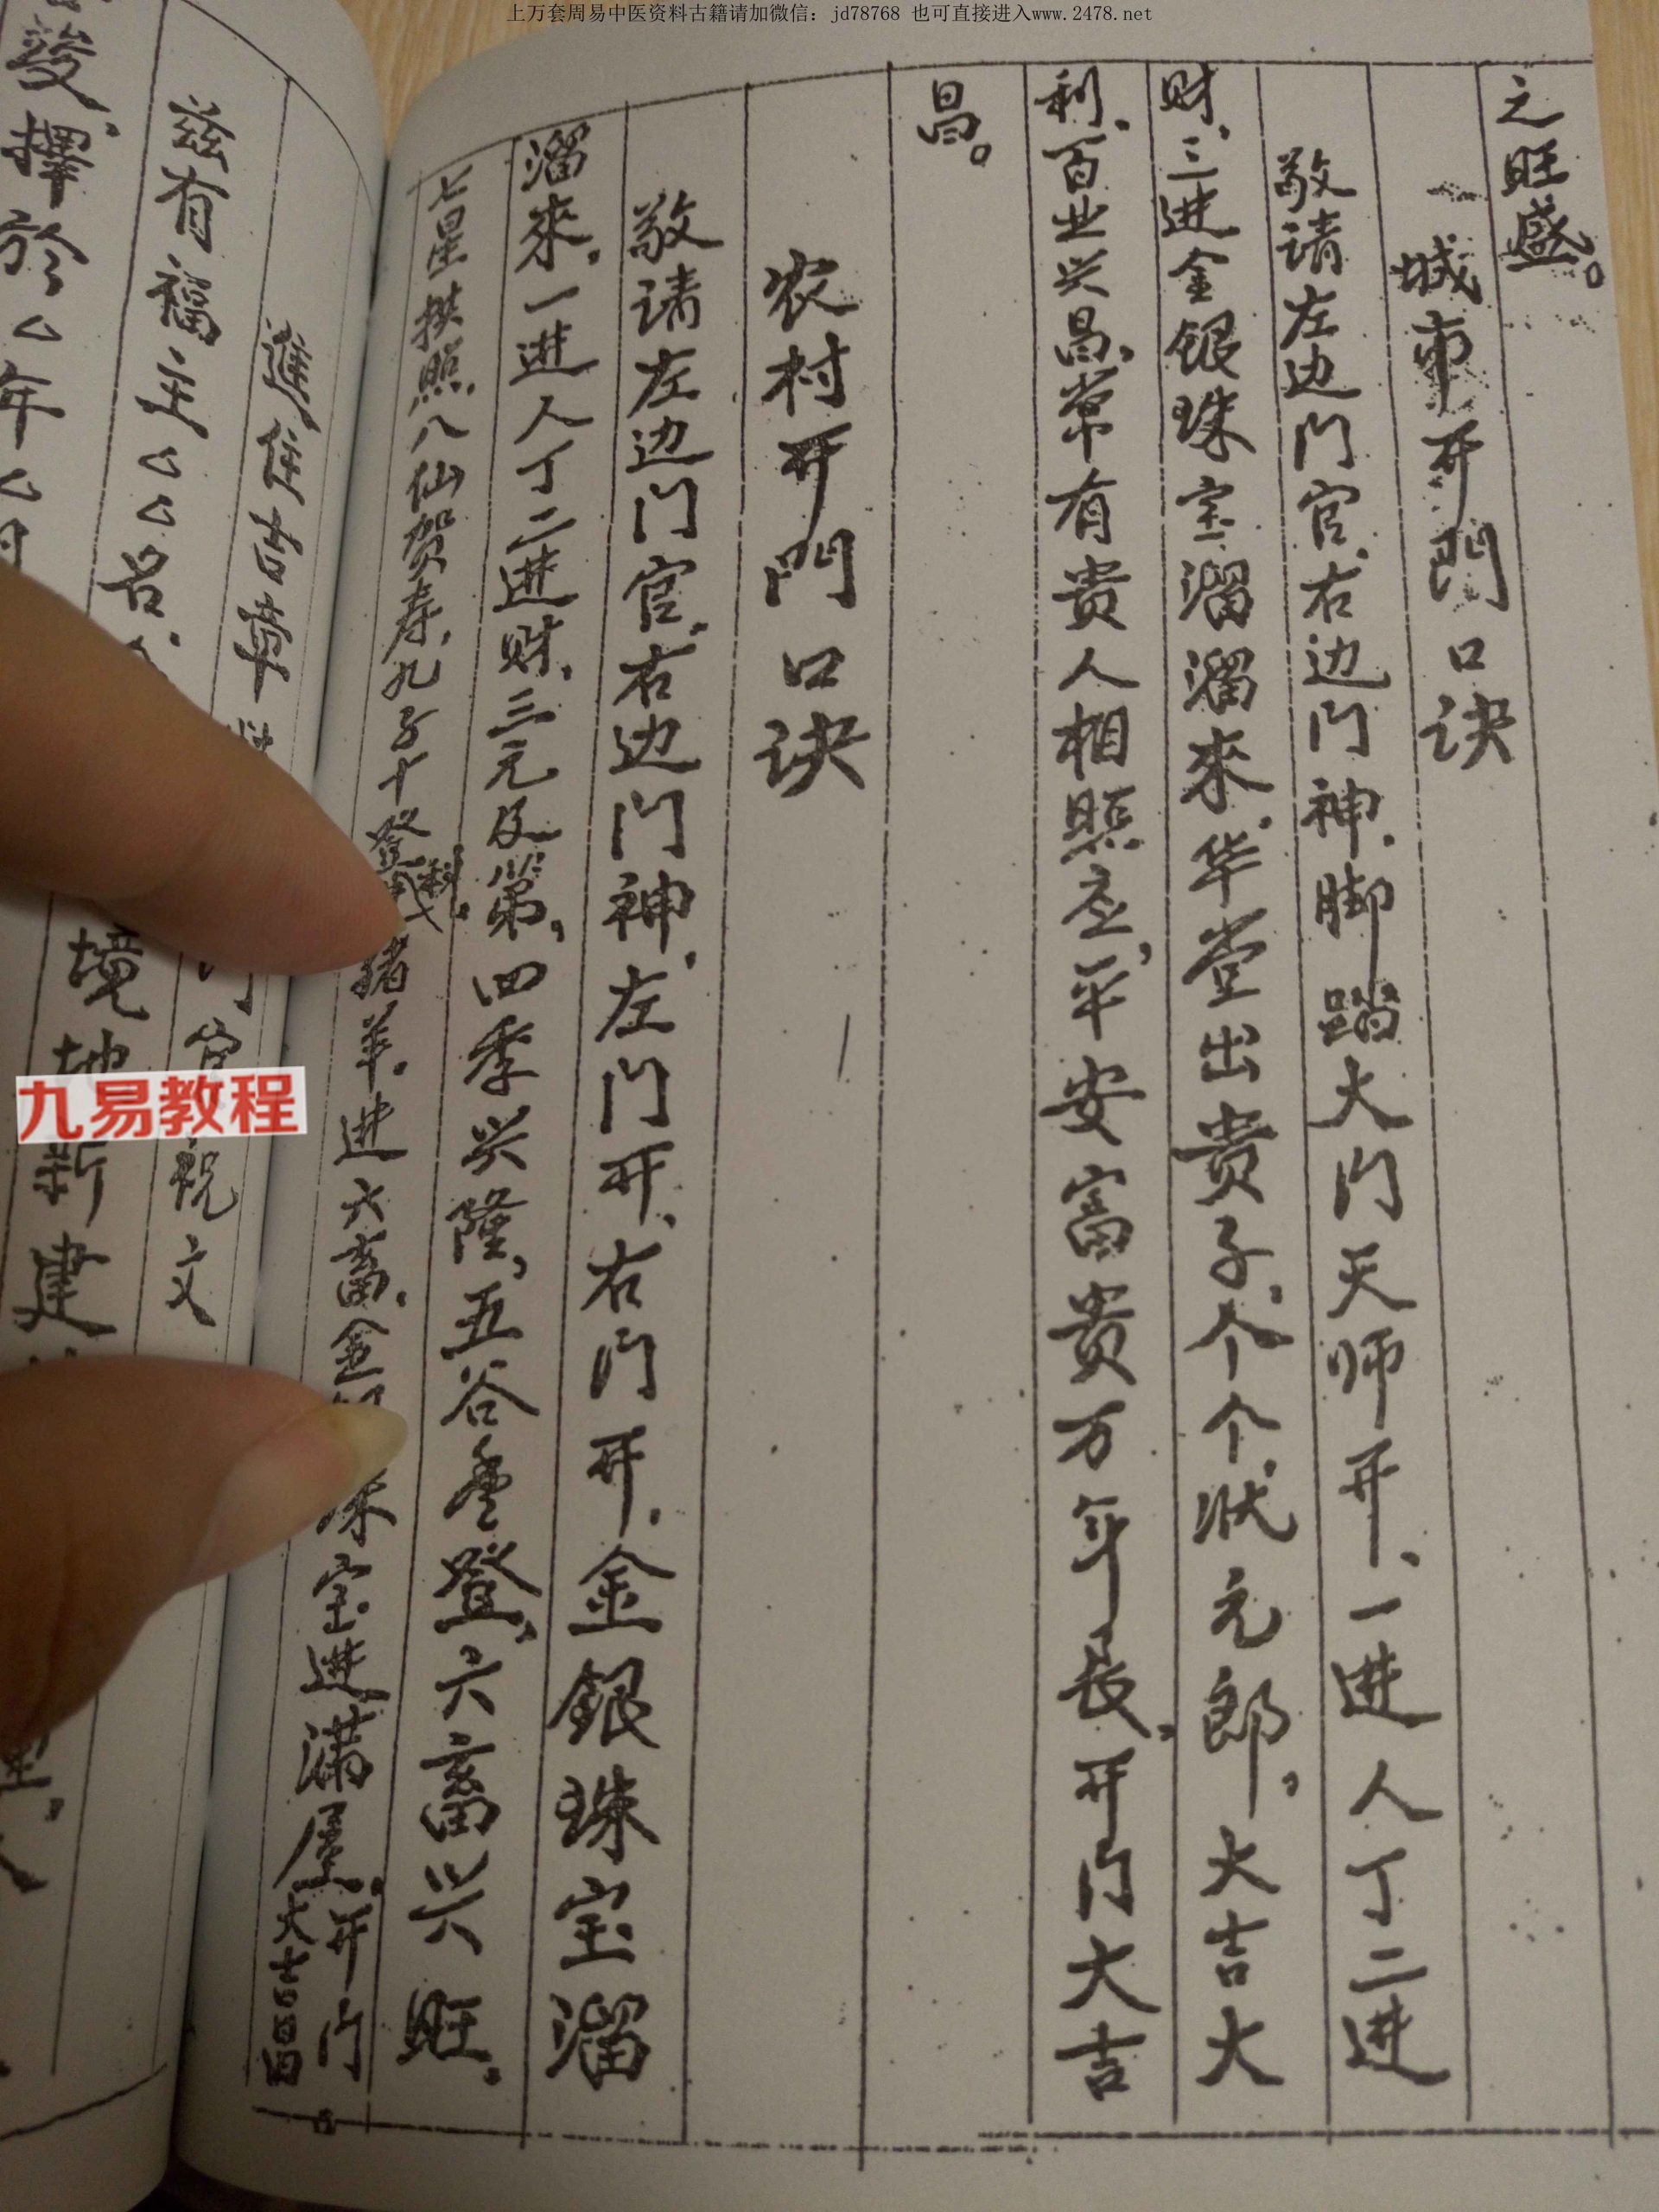 上万套周易中医资料古籍请加微信：jd78768 也可直接进入www.2478.net
之旺盛。
城市开門口诀
敬请左边门官、右边门神、脚踏大门天师开、一进人丁二进
财、三进金银珠宝溜溜來、华堂出贵子、个个状元郎。大吉大
利、百业兴昌、常有贵人相照应，平安富贵万年長、开门大吉
昌。
农村开門口诀
敬请左边门官、右边门神、左门开、右门开、金銀珠宝溜
溜來、一进人丁二进财、三元及第，四季兴隆，五谷豊登、六畜兴旺、
七星拱照八仙贺寿、九子十登科、猪羊、进六畜、金宝进满屋、开门
大吉昌
進住吉章
兹有福主厶厶名、
官祝文
擇於厶年厶月
境地新建
九易教程